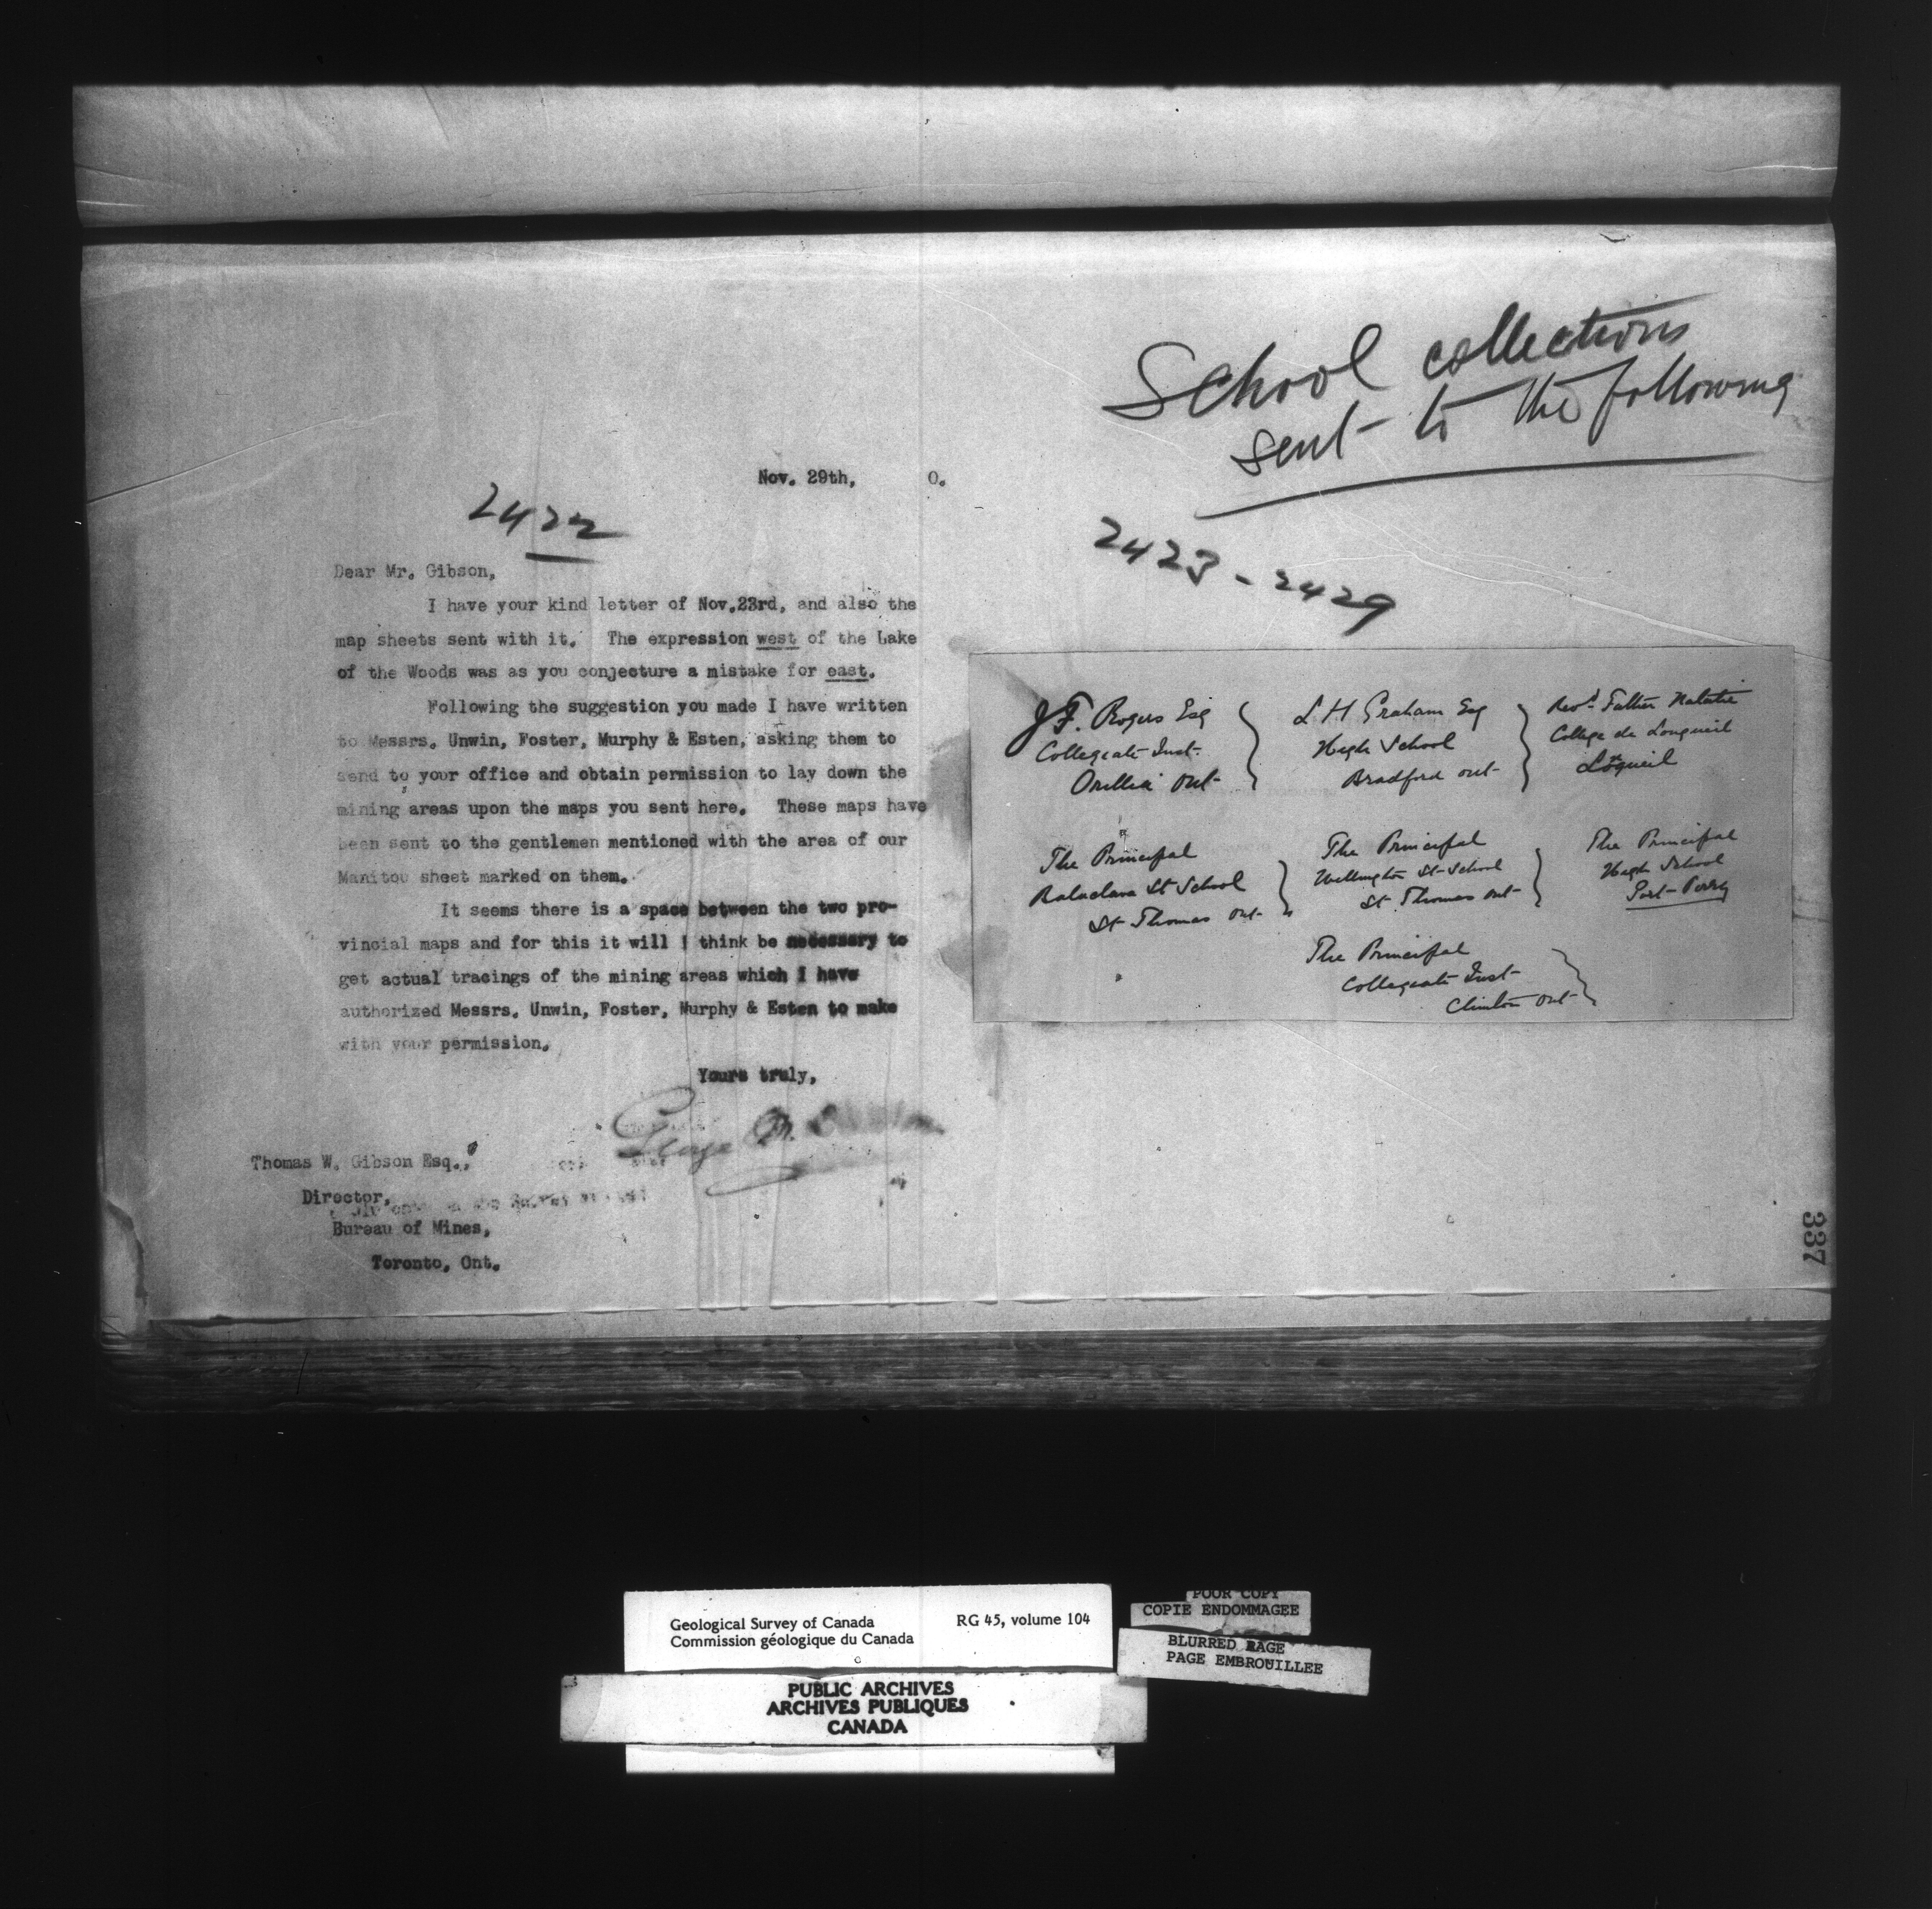 Nov. 29th, 0.
2422
Dear Mr. Gibson,
I have your kind letter of Nov.23rd, and also the
map sheets sent with it. The expression west of the Lake
of the Woods was as you conjecture a mistake for east.
Following the suggestion you made I have written
to Messrs. Unwin, Foster, Murphy & Esten, asking them to
send to your office and obtain permission to lay down the
mining areas upon the maps you sent here. These maps have
been sent to the gentlemen mentioned with the area of our
Manitou sheet marked on them.
It seems there is a space between the two pro-
vincial maps and for this it will I think be necessary to
get actual tracings of the mining areas which I have
authorized Messrs. Unwin, Foster, Murphy & Esten to make
with your permission.
Yours truly,
George M.
Thomas W. Gibson Esq.,
Director,
Bureau of Mines,
Toronto, Ont.
School collections
sent to the following
2423 - 2429
J.F. Rogers Esq
Collegiate Inst.
Orillia Ont
L H Graham Esq
High School
Bradford Ont
Revd. Father
College de Longueil
The Principal
Balaclava St School
St Thomas Ont
The Principal
Wellington St School
St. Thomas Ont
The Principal
High School
Port-Perry
The Principal
Collegiate Inst
Clinton Ont
337
Geological Survey of Canada RG 45, volume 104
Commission géologique du Canada
PUBLIC ARCHIVES
ARCHIVES PUBLIQUES
CANADA
POOR COPY
COPIE ENDOMMAGEE
BLURRED PAGE
PAGE EMBROUILLEE